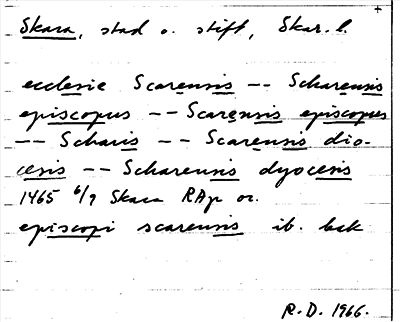 Skara, stad o. stift, Skar. l.
ecclesie Scarensis -- Scharensis
episcopus -- Scarensis episcopus
-- Scharis -- Scarensis dio-
cesis -- Scharensis dyocesis
1465 6/9 Skara RAp or.
episcopi scarensis ib. bak
R.D. 1966.